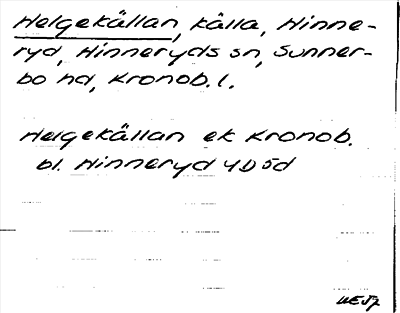 Helgekällan, källa, Hinne-
ryd, Hinneryds sn, Sunner-
bo hd, Kronob. l.
Helgekällan ek Kronob.
bl. Hinneryd 4D5d